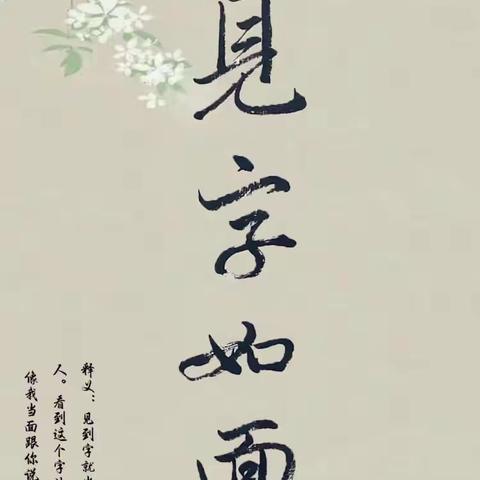 見字如面
释义：见到字就
人。看到这个字
像我当面跟你说